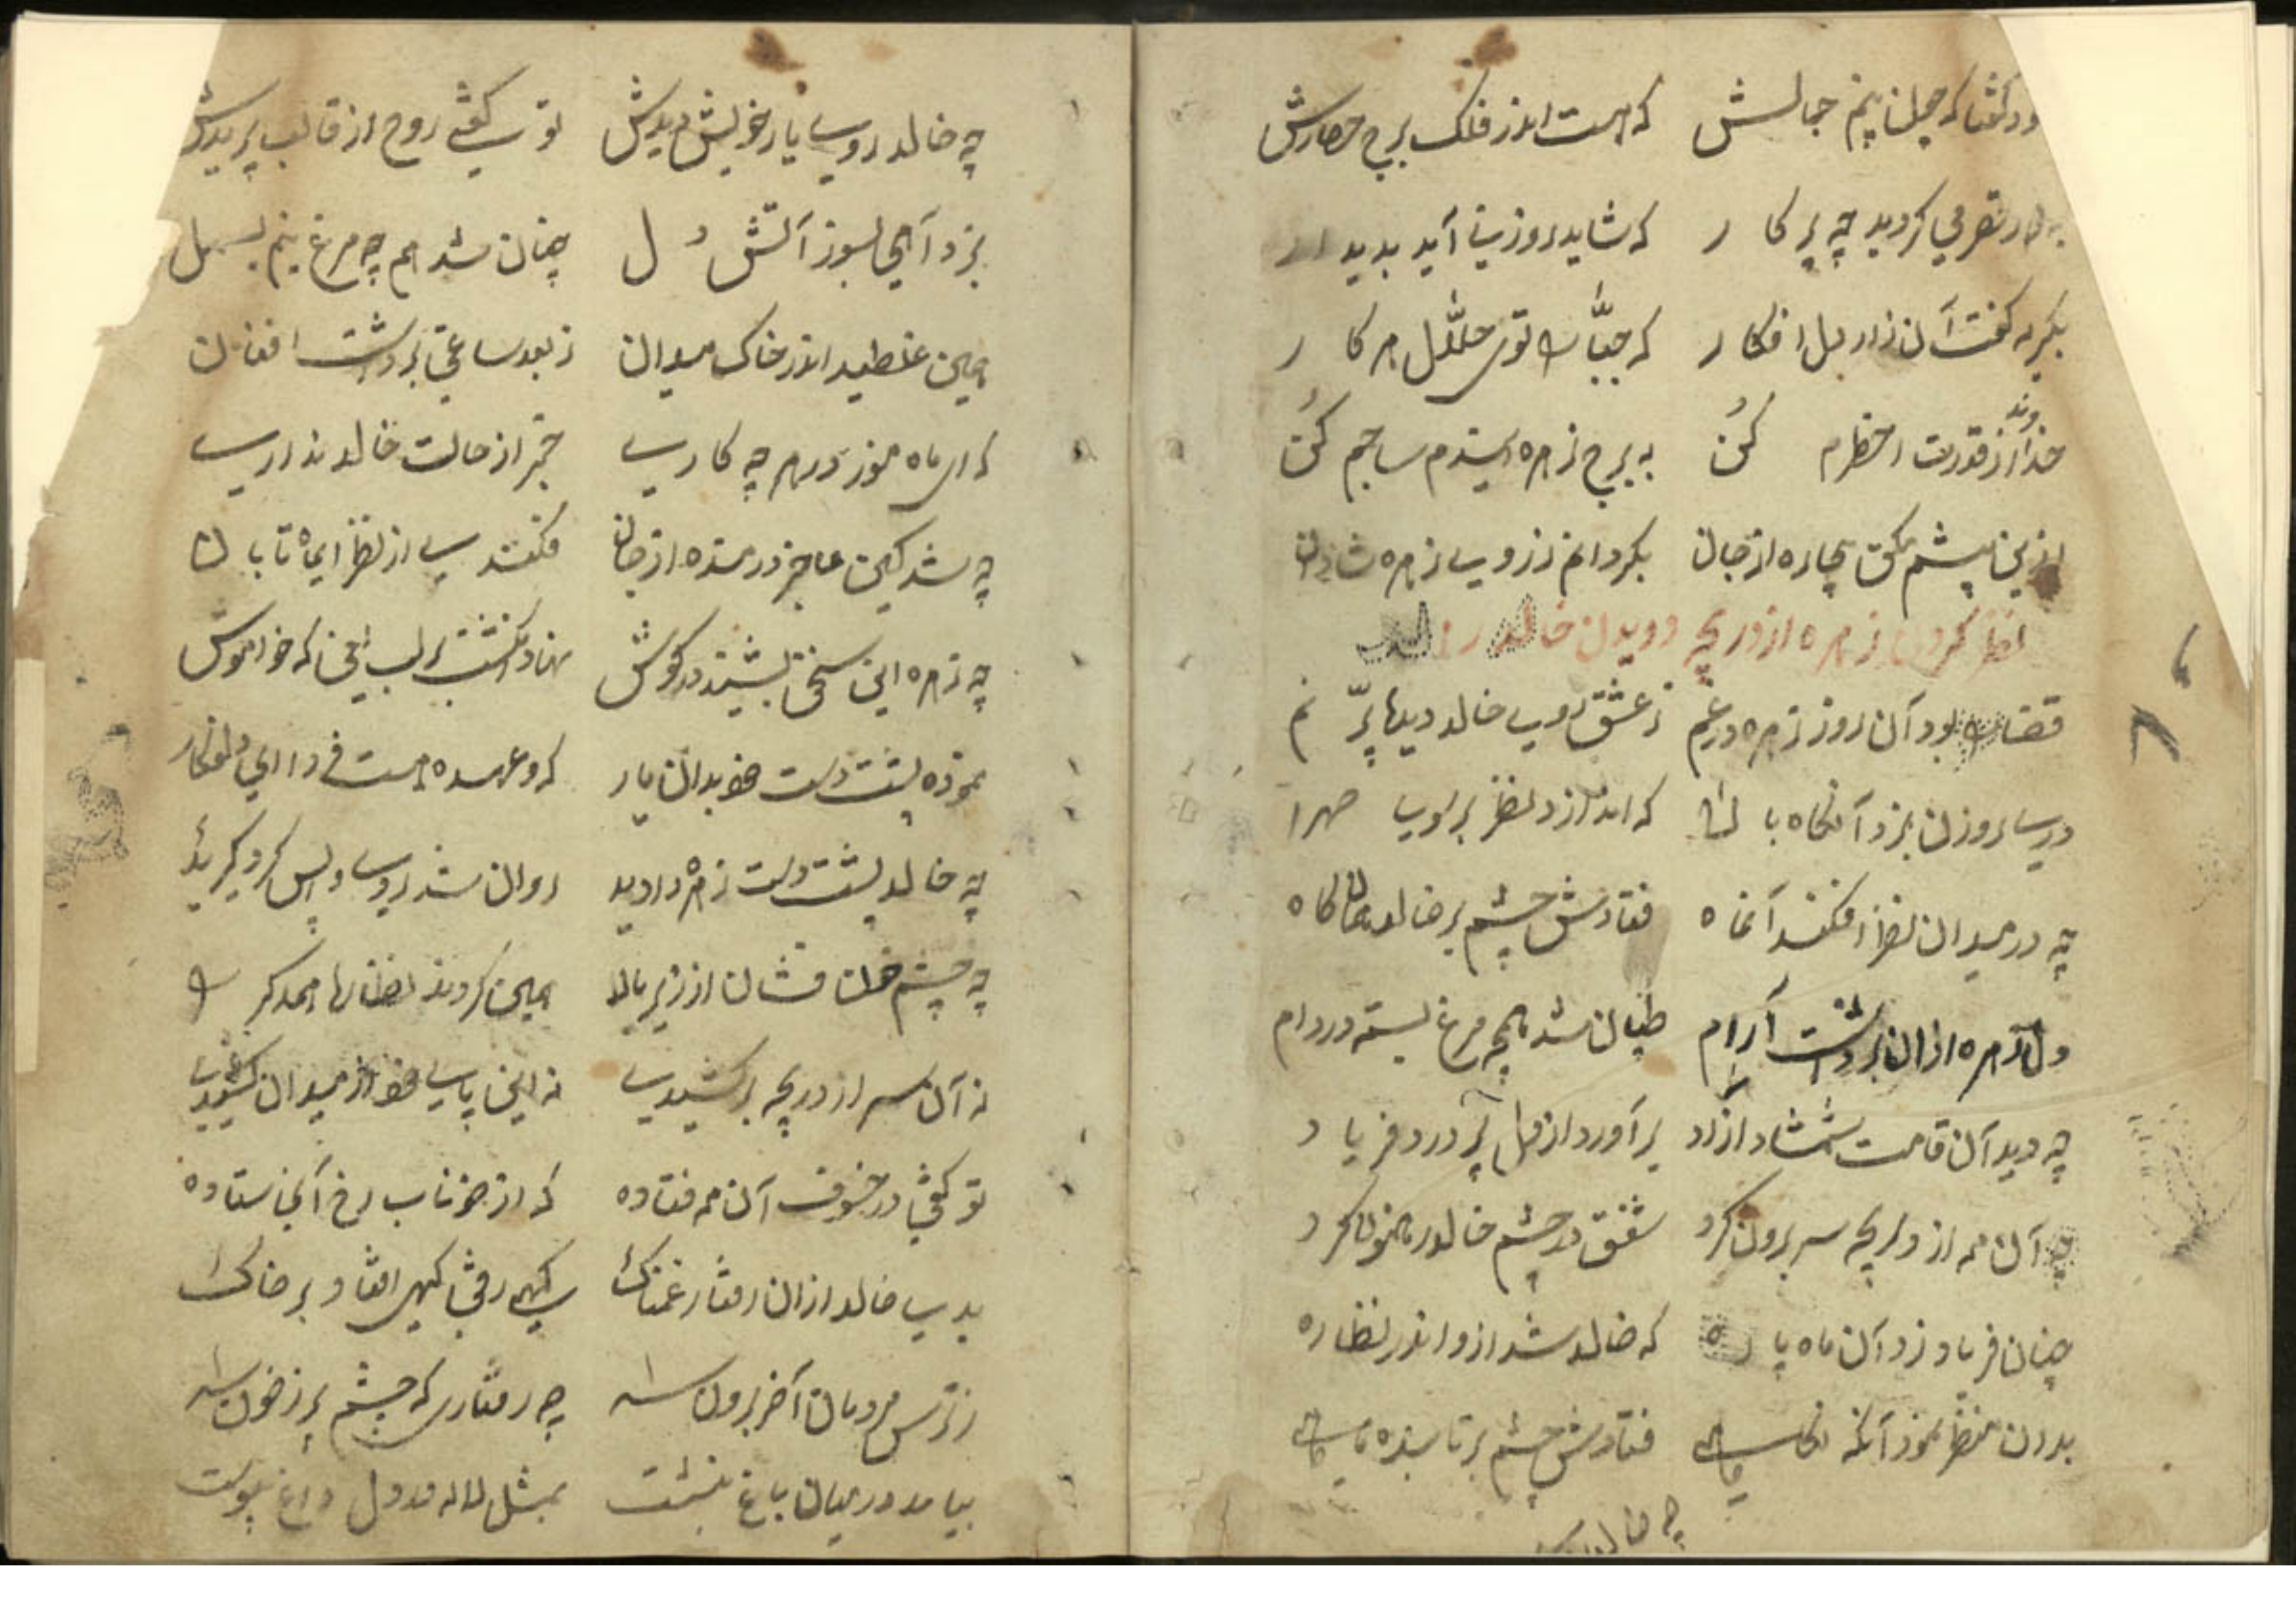 که هست اندر فلک برج حصارش
چه پرکار که شاید روزنی آید بدیدار
بگریه گفت آن زار دل افکار که جبّارا توی حلّال هر کار
خداوندا از قدرت احضرم کُن به برج زهره ایندم ساجم کُن
پیشم بیچاره از جان بگردانم ز روی زهره شادان
نظر کردن زهره از دریچه و دیدن خالد را
قضارا بود آن روز زهره در غم ز عشق روی خالد دیدها پرّ نم
دری روزن بزد آنگاه بالا که اندازد نظر بر روی صحرا
چه در میدان نظر افکند آنماه فتادش چشم بر خالد بناگاه
دل زهره ازان برداشت آرام طپان شد همچه مرغ بسته در دام
چه دید آن قامت شمشاد ازاد برآورد از دل پُر درد فریاد
چه آن مه از دریچه سر برون کرد شفق در چشم خالد پرخون کرد
چنان فریاد زد آن ماه پاره که خالد شد ازو اندر نظاره
بدان منظر نمود آنگه نگاهی فتادش چشم بر تابنده ماهی
چه خالد روی
چه خالد روی یار خویش دیدش تو گفتی روح از قالب پریدش
بزد آهی بسوز آتش دل چنان شد هم چه مرغ نیم بسمل
همین غلطید اندر خاک میدان ز بعد ساعتی برداشت افغان
که ای ماه موز درهر چه کاری خبر از حالت خالد نداری
چه شد کین عاجز درمنده از جان فکندی از نظر ایماه تابان
چه زهره این سخن بشنید در گوش نهاد انگشت بر لب یعنی که خواموش
نموده پشت دست خو بدان یار که وعده هست فردا ای دلفکار
چه خالد پشت دست زهره را دید روان شد روی واپس کرد گریید
چه چشم خون فشان از زیر بالا همین کردند نظارها همدگر را
نه آن سر از دریچه برکشیدی نه این پای خو از میدان کشیدی
تو گفتی در خسوف آن مه فتاده که از خوناب رخ آن ستاده
بدی خالد ازان رفتار غمناک گهی رفتی گهی افتاد بر خاک
ز ترس مردمان آخر برون شد چه رفتاری که چشم پر ز خون شد
بیامد در میان باغ بنشست بمثل لاله در دل داغ پیوست